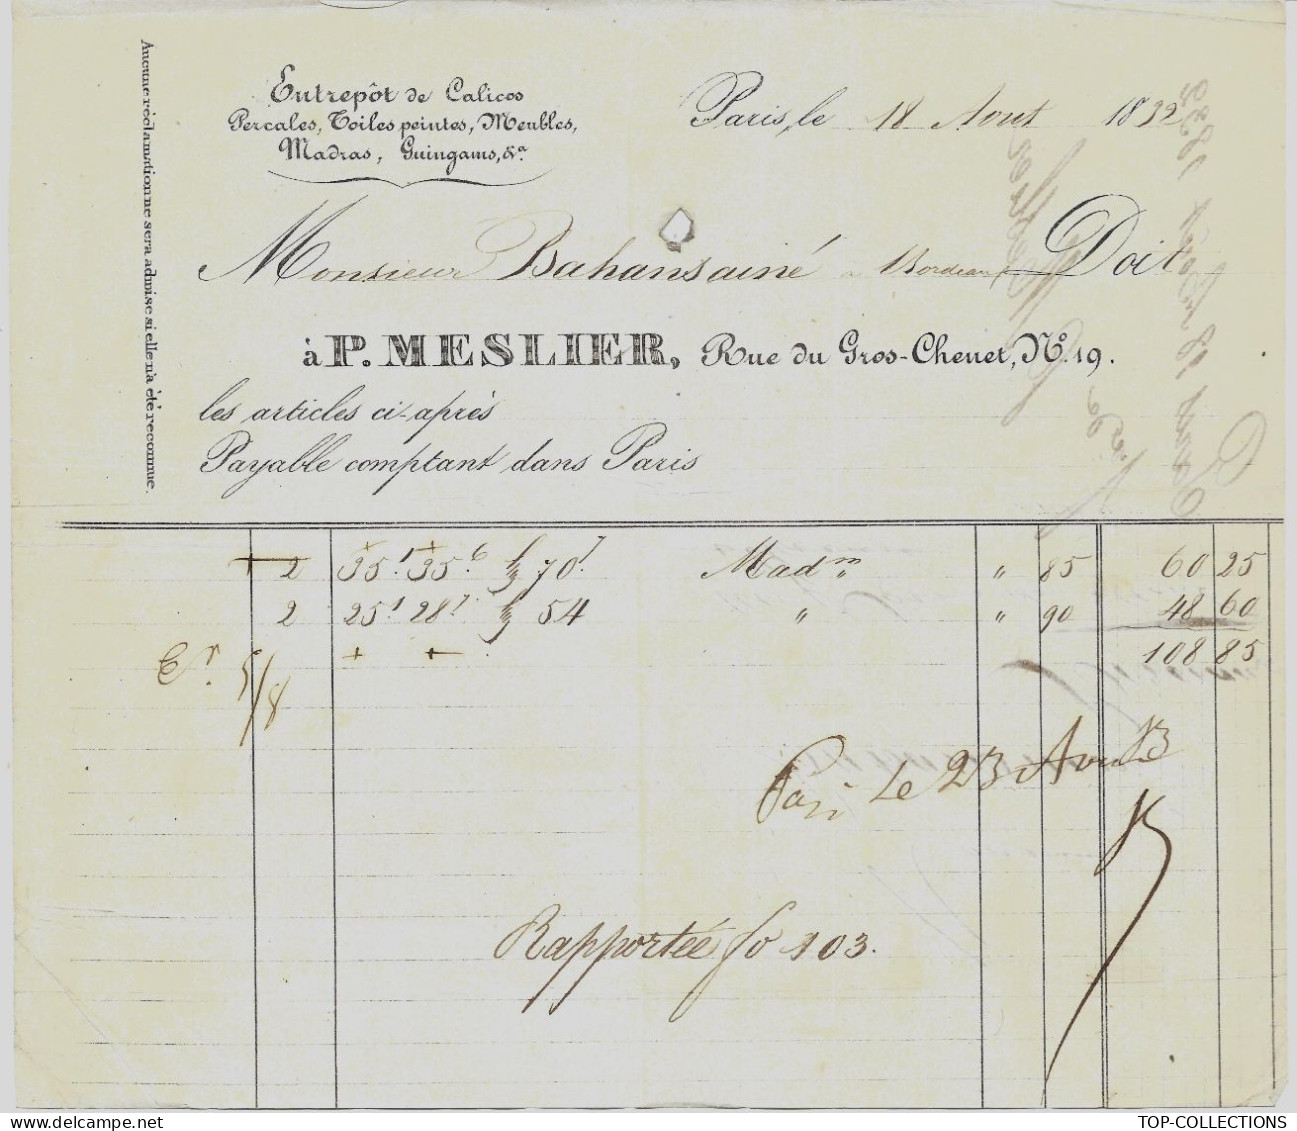 Aucune réclamation ne sera admise si elle n'a été reconnue.
Entrepôt de Calicos
Percales, Toiles peintes, Meubles,
Madras, Guingams, &a.
Paris, le 18 Aout 1832
Monsieur Bahansainé a Bordeaux Doit
à P. MESLIER, Rue du Gros-Chenet, No. 19.
les articles ci-après
Payable comptant dans Paris
2 35.1 35.6 70.7 Mad " 85 60 25
2 25.1 28.7 54 " " 90 48 60
108 85
5/8
Le 23
Rapportée fo 103.
TOP-COLLECTIONS